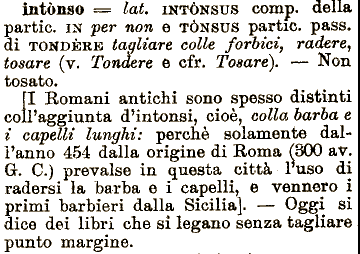 intònso = lat. INTÒNSUS comp. della
partic. IN per non e TÒNSUS partic. pass.
di TONDÈRE tagliare colle forbici, radere,
tosare (v. Tondere e cfr. Tosare). — Non
tosato.
[I Romani antichi sono spesso distinti
coll'aggiunta d'intonsi, cioè, colla barba e
i capelli lunghi: perchè solamente dal-
l'anno 454 dalla origine di Roma (300 av.
G. C.) prevalse in questa città l'uso di
radersi la barba e i capelli, e vennero i
primi barbieri dalla Sicilia]. — Oggi si
dice dei libri che si legano senza tagliare
punto margine.